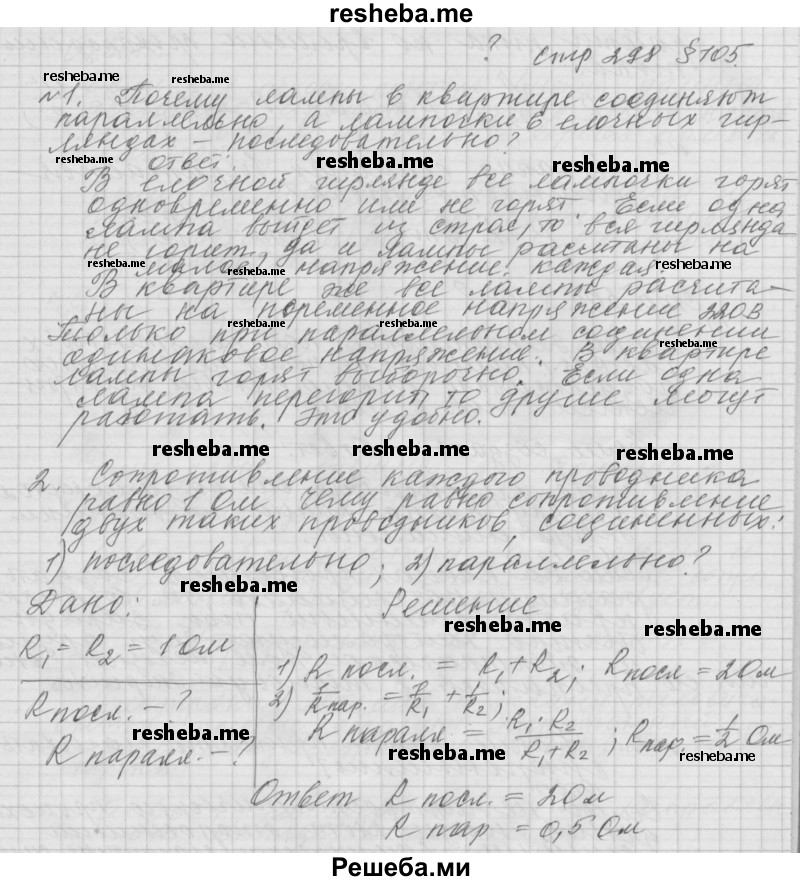 resheba.me
? стр 298 §105.
resheba.me resheba.me
№1. Почему лампы в квартире соединяют
параллельно, а лампочки в елочных гир-
ляндах – последовательно?
resheba.me ответ. resheba.me resheba.me
В елочной гирлянде все лампочки горят
одновременно или не горят. Если одна
лампа выйдет из строя, то вся гирлянда
не горит, да и лампы расчитаны на
resheba.me малое resheba.me напряжение. каждая. resheba.me
В квартире же все лампы расчита-
ны на переменное напряжение 220В
resheba.me resheba.me
только при параллельном соединении
одинаковое напряжение. В квартире
лампы горят выборочно. Если одна
лампа перегорит то другие могут
работать. Это удобно.
resheba.me resheba.me resheba.me
2. Сопротивление каждого проводника
равно 1 Ом чему равно сопротивление
двух таких проводников, соединенных:
1) последовательно; 2) параллельно?
resheba.me resheba.me
Дано: Решение
resheba.me resheba.me
R₁ = R₂ = 1 Ом
1) R посл. = R₁ + R₂; R посл = 2 Ом
R посл. – ?
2) 1/R пар. = 1/R₁ + 1/R₂;
resheba.me
R паралл. – ?
R паралл. = R₁ · R₂ / R₁ + R₂ ; R пар. = 1/2 Ом
resheba.me resheba.me
Ответ R посл. = 2 Ом
R пар = 0,5 Ом
Решеба.ми